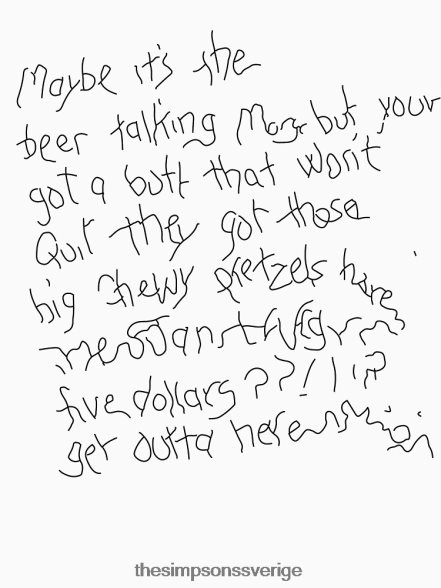 Maybe it's the
beer talking Marge but your
got a butt that won't
Quit they got those
big chewy pretzels here
five dollars??!!!?
get outta here
thesimpsonssverige